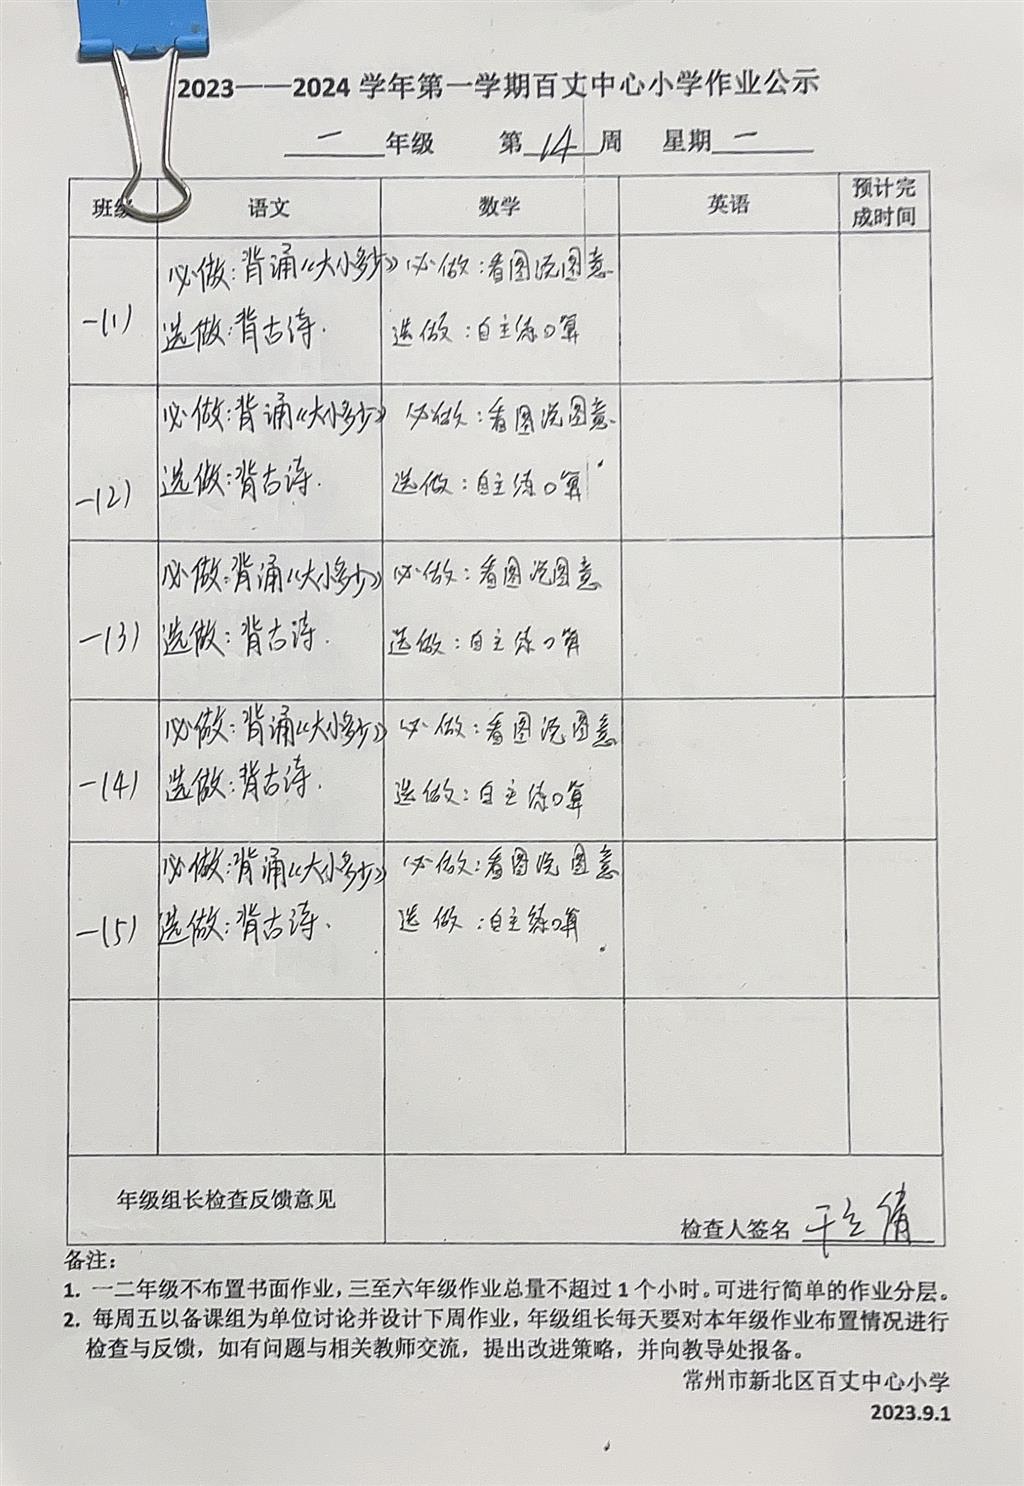 2023——2024 学年第一学期百丈中心小学作业公示
二 年级 第 14 周 星期 一
班级 语文 数学 英语 预计完成时间
一(1) 必做:背诵《大小多少》 必做:看图说图意
选做:背古诗. 选做:自主练口算
一(2) 必做:背诵《大小多少》 必做:看图说图意
选做:背古诗. 选做:自主练口算
一(3) 必做:背诵《大小多少》 必做:看图说图意
选做:背古诗. 选做:自主练口算
一(4) 必做:背诵《大小多少》 必做:看图说图意
选做:背古诗. 选做:自主练口算
一(5) 必做:背诵《大小多少》 必做:看图说图意
选做:背古诗. 选做:自主练口算
年级组长检查反馈意见
检查人签名
备注:
1. 一二年级不布置书面作业,三至六年级作业总量不超过 1 个小时。可进行简单的作业分层。
2. 每周五以备课组为单位讨论并设计下周作业,年级组长每天要对本年级作业布置情况进行
检查与反馈,如有问题与相关教师交流,提出改进策略,并向教导处报备。
常州市新北区百丈中心小学
2023.9.1